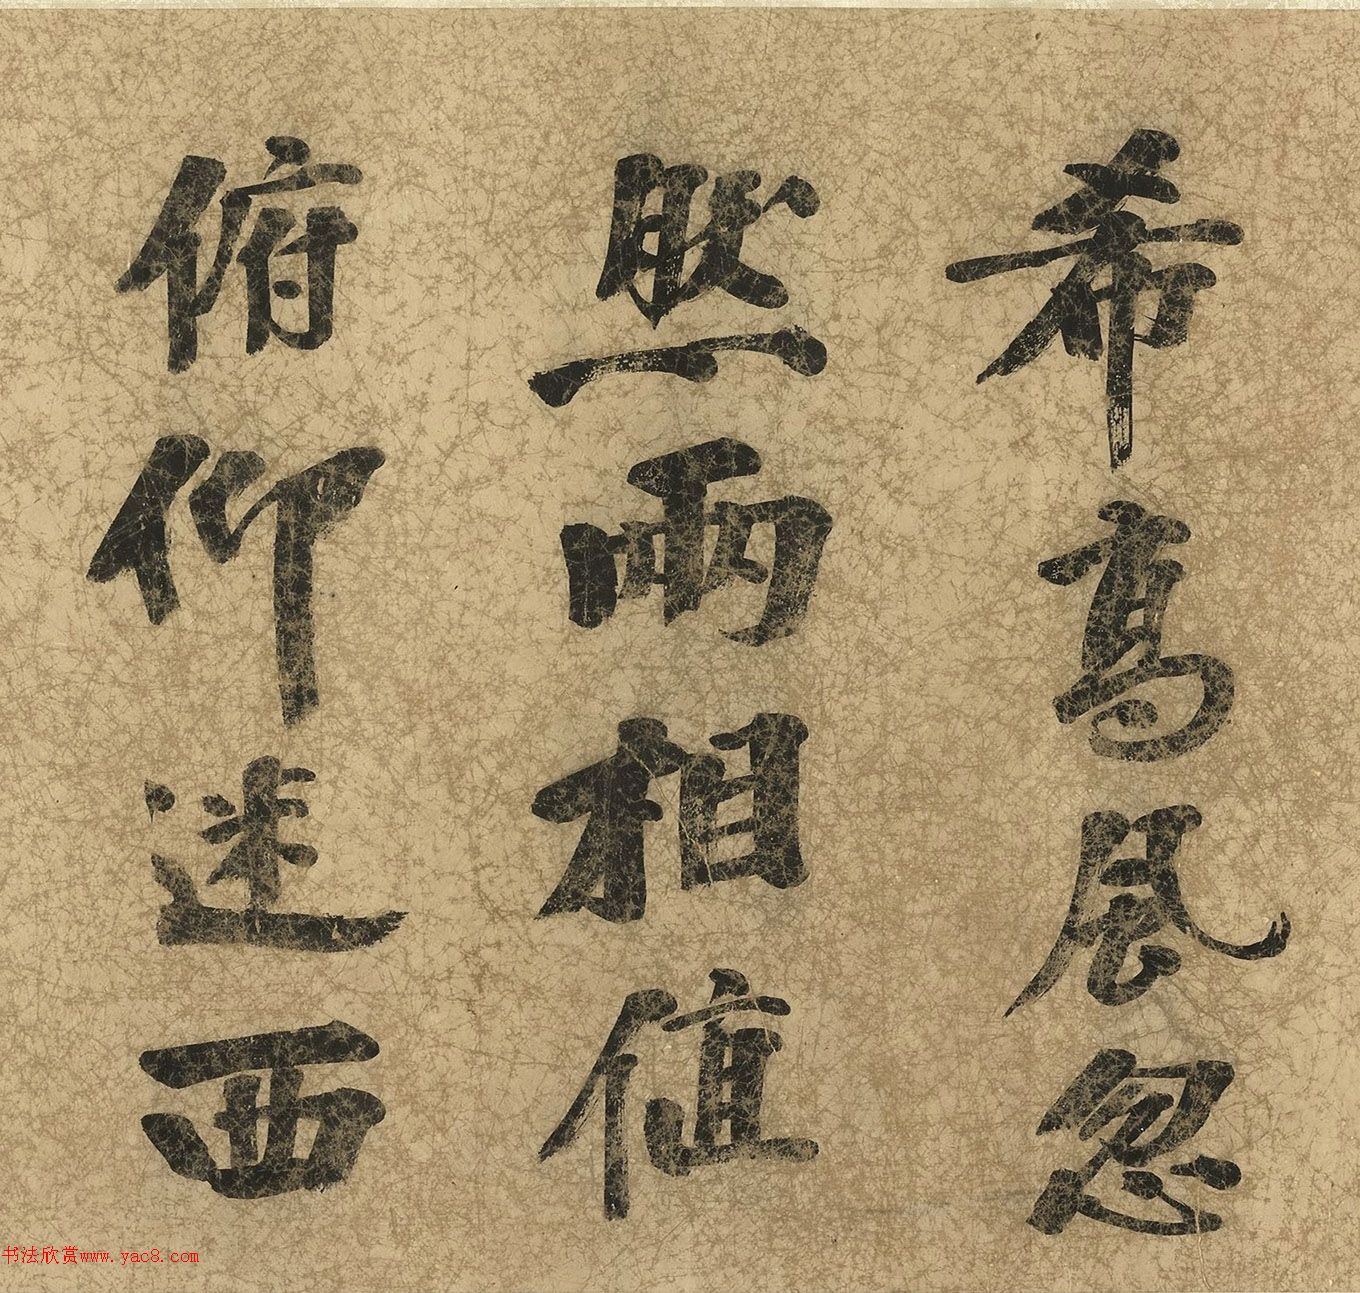 希高風忽
然兩相值
俯仰迷西
书法欣赏www.yac8.com